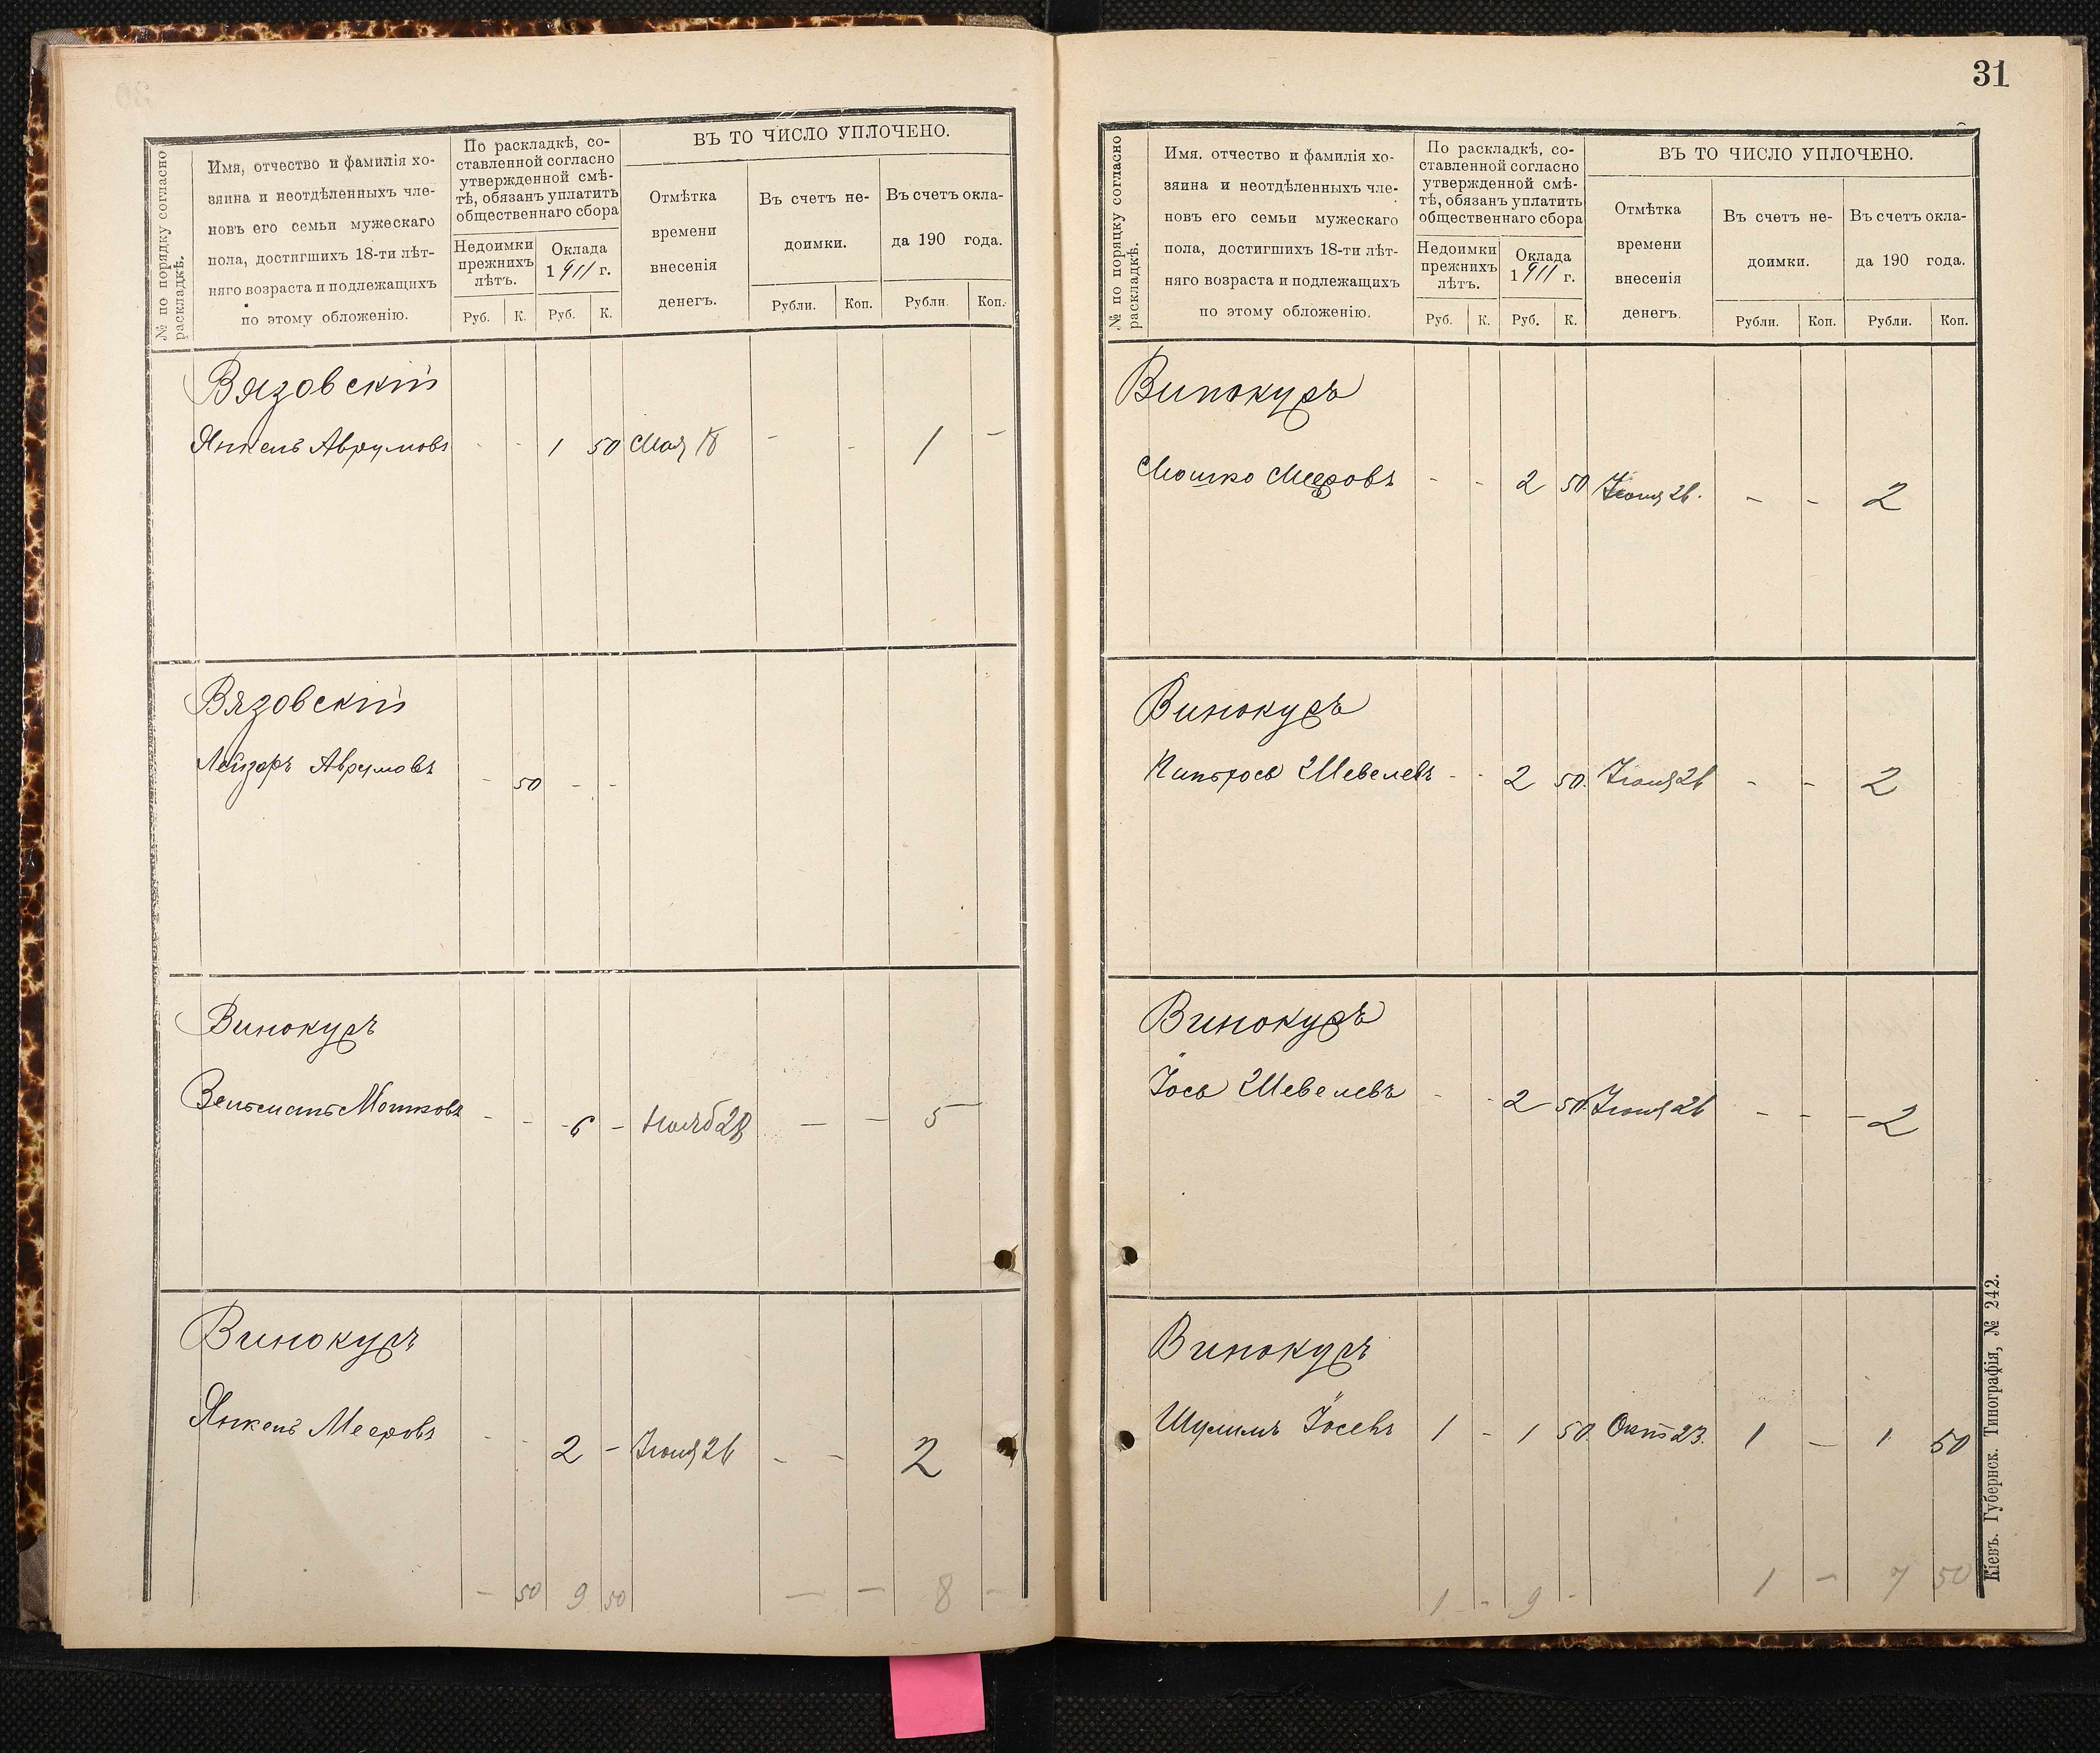 № по порядку согласно
раскладкѣ.
Имя, отчество и фамилія хо-
зяина и неотдѣленныхъ чле-
новъ его семьи мужескаго
пола, достигшихъ 18-ти лѣт-
няго возраста и подлежащихъ
по этому обложенію.
По раскладкѣ, со-
ставленной согласно
утвержденной смѣ-
тѣ, обязанъ уплатить
общественнаго сбора
Недоимки
прежнихъ
лѣтъ.
Оклада
1911 г.
Руб. К. Руб. К.
ВЪ ТО ЧИСЛО УПЛОЧЕНО.
Отмѣтка
времени
внесенія
денегъ.
Въ счетъ не-
доимки.
Въ счетъ окла-
да 190 года.
Рубли. Коп. Рубли. Коп.
Вязовскій
Янкель Аврумовъ - - 1 50 Мая 18 - - 1 -
Вязовскій
Лейзоръ Аврумовъ - 50 - - -
Винокуръ
Зельманъ Мошковъ - - - 6 - Нояб 28 - - 5 -
Винокуръ
Янкель Мееровъ - - 2 - Іюня 26 - - 2
- 50 9 50 - - 8 -
31
№ по порядку согласно
раскладкѣ.
Имя, отчество и фамилія хо-
зяина и неотдѣленныхъ чле-
новъ его семьи мужескаго
пола, достигшихъ 18-ти лѣт-
няго возраста и подлежащихъ
по этому обложенію.
По раскладкѣ, со-
ставленной согласно
утвержденной смѣ-
тѣ, обязанъ уплатить
общественнаго сбора
Недоимки
прежнихъ
лѣтъ.
Оклада
1911 г.
Руб. К. Руб. К.
ВЪ ТО ЧИСЛО УПЛОЧЕНО.
Отмѣтка
времени
внесенія
денегъ.
Въ счетъ не-
доимки.
Въ счетъ окла-
да 190 года.
Рубли. Коп. Рубли. Коп.
Винокуръ
Мошко Мееровъ - - 2 50 Іюня 26. - - 2
Винокуръ
Шевелевъ - - 2 50. Іюня 26 - - 2
Винокуръ
Іось Шевелевъ - - 2 50. Іюня 26 - - - 2
Винокуръ
Шулимъ Іосевъ 1 - 1 50. Окт 23. 1 - 1 50
1 - 9 - 1 - 7 50
Кіевъ. Губернск. Типографія, № 242.